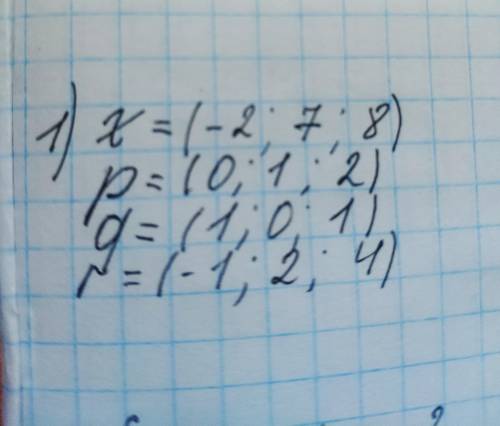 1) x = (-2; 7; 8)
p = (0; 1; 2)
q = (1; 0; 1)
r = (-1; 2; 4)